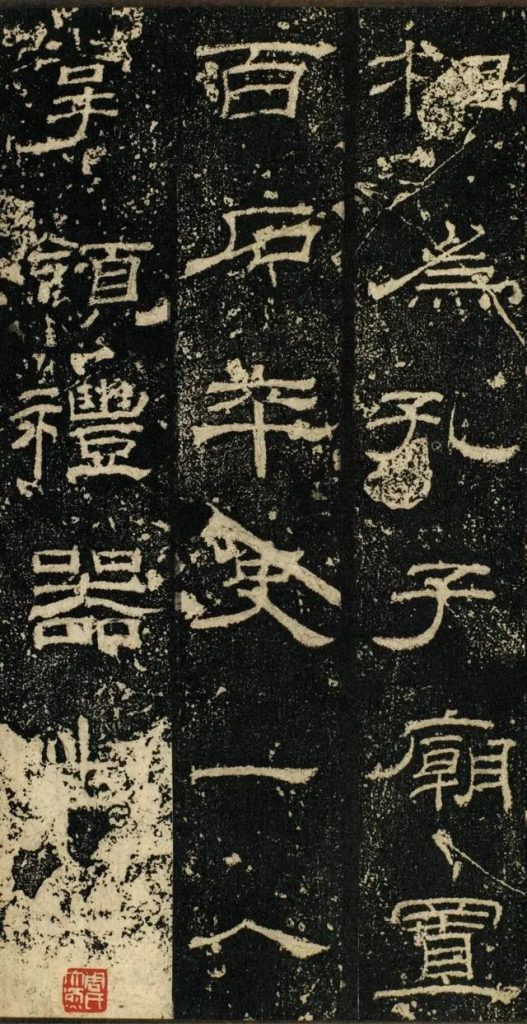 相為孔子廟置
百石卒史一人
掌領禮器出